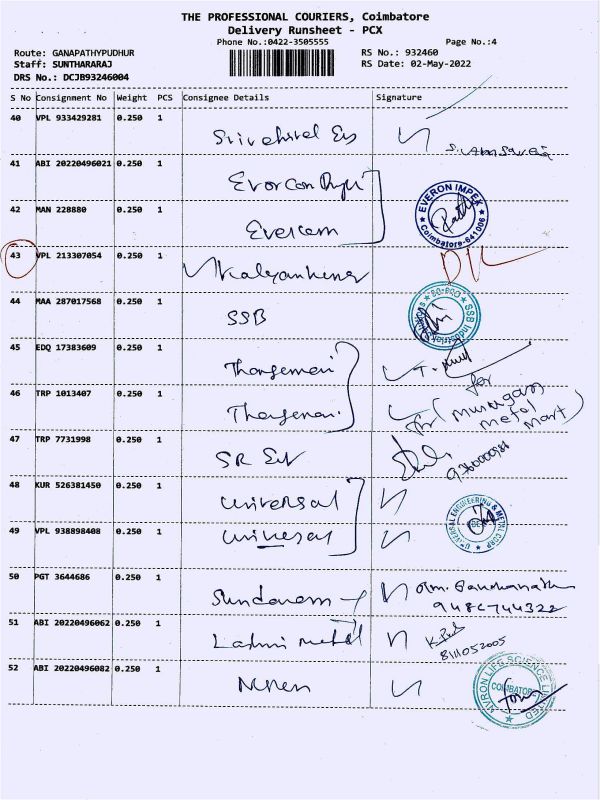 THE PROFESSIONAL COURIERS, Coimbatore
Delivery Runsheet - PCX
Phone No.:0422-3505555
Page No.:4
Route: GANAPATHYPUDHUR
RS No.: 932460
Staff: SUNTHARARAJ
RS Date: 02-May-2022
DRS No.: DCJB93246004
S No Consignment No Weight PCS Consignee Details Signature
40 VPL 933429281 0.250 1
41 ABI 20220496021 0.250 1
EVERON IMPEX
Coimbatore-641006
42 MAN 228880 0.250 1
43 VPL 213307054 0.250 1
44 MAA 287017568 0.250 1 SSB
SSB Industrial
45 EDQ 17383609 0.250 1
for
46 TRP 1013407 0.250 1
for (Murugan
metal
mart)
47 TRP 7731998 0.250 1
48 KUR 526381450 0.250 1 Universal
UNIVERSAL ENGINEERING & METAL CORP
49 VPL 938898408 0.250 1
50 PGT 3644686 0.250 1
Sundaram
51 ABI 20220496062 0.250 1
Laxmi metal
8111052005
52 ABI 20220496082 0.250 1
LIFE SCIENCE LIMITED
COIMBATORE